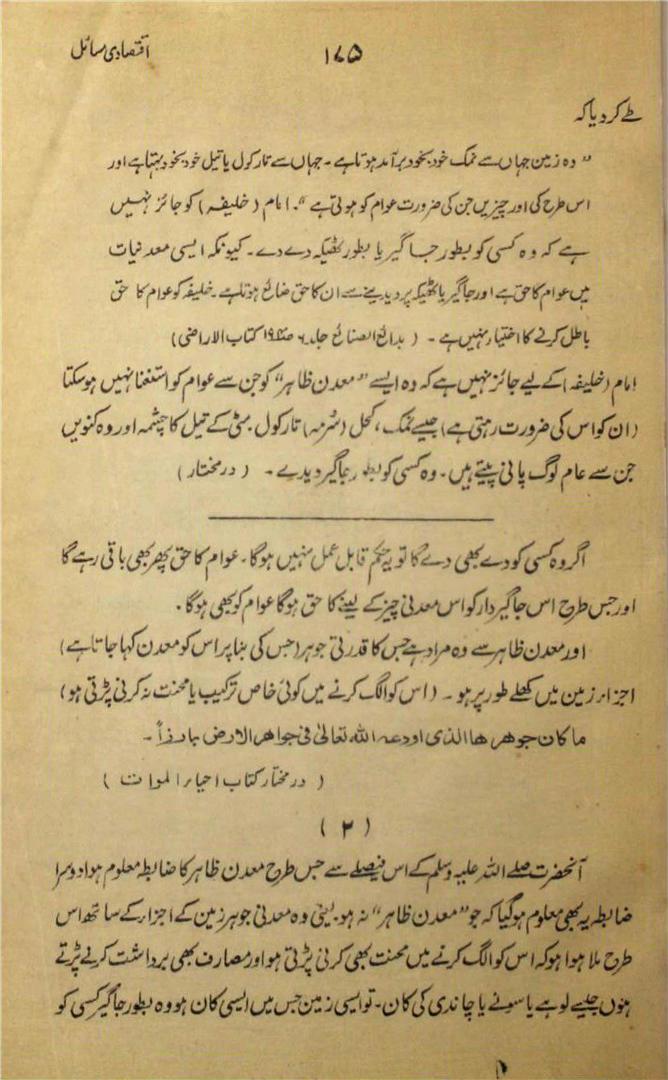 اقتصادی مسائل
۱۷۵
طے کر دیا کہ
" وہ زمین جہاں سے نمک خود بخود برآمد ہوتا ہے ۔ جہاں سے تارکول یا تیل خود بخود بہتا ہے اور
اس طرح کی اور چیزیں جن کی ضرورت عوام کو ہوتی ہے "۔ امام ( خلیفہ ) کو جائز نہیں
ہے کہ وہ کسی کو بطور جاگیر یا بطور ٹھیکہ دے دے ۔ کیونکہ ایسی معدنیات
میں عوام کا حق ہے اور جاگیر یا ٹھیکہ پر دیدینے سے ان کا حق ضائع ہوتا ہے ۔ خلیفہ کو عوام کا حق
باطل کرنے کا اختیار نہیں ہے ۔ ( بدائع الصنائع جلد ۶ ص ۱۹۴ کتاب الاراضی )
امام ( خلیفہ ) کے لیے جائز نہیں ہے کہ وہ ایسے " معدن ظاہر " کو جن سے عوام کو استغنا نہیں ہو سکتا
( ان کو اس کی ضرورت رہتی ہے ) جیسے نمک ، کحل ( سُرمہ ) تارکول مٹی کے تیل کا چشمہ اور وہ کنویں
جن سے عام لوگ پانی پیتے ہیں ۔ وہ کسی کو بطور جاگیر دیدے ۔ ( درمختار )
اگر وہ کسی کو دے بھی دے گا تو یہ حکم قابل عمل نہیں ہوگا ۔ عوام کا حق پھر بھی باقی رہے گا
اور جس طرح اس جاگیردار کو اس معدنی چیز کے لینے کا حق ہوگا عوام کو بھی ہوگا ۔
اور معدن ظاہر سے وہ مراد ہے جس کا قدرتی جوہر ( جس کی بنا پر اس کو معدن کہا جاتا ہے )
اجزاء زمین میں کھلے طور پر ہو ۔ ( اس کو الگ کرنے میں کوئی خاص ترکیب یا محنت نہ کرنی پڑتی ہو )
ما کان جوھرھا الذی اودعہ اللہ تعالیٰ فی جواھر الارض بارزاً ۔
( درمختار کتاب احیاء الموات )
( ۲ )
آنحضرت صلے اللہ علیہ وسلم کے اس فیصلے سے جس طرح معدن ظاہر کا ضابطہ معلوم ہوا دوسرا
ضابطہ یہ بھی معلوم ہو گیا کہ جو " معدن ظاہر " نہ ہو یعنی وہ معدنی جوہر زمین کے اجزار کے ساتھ اس
طرح ملا ہوا ہو کہ اس کو الگ کرنے میں محنت بھی کرنی پڑتی ہو اور مصارف بھی برداشت کرنے پڑتے
ہوں جیسے لوہے یا سونے یا چاندی کی کان ۔ تو ایسی زمین جس میں ایسی کان ہو وہ بطور جاگیر کسی کو